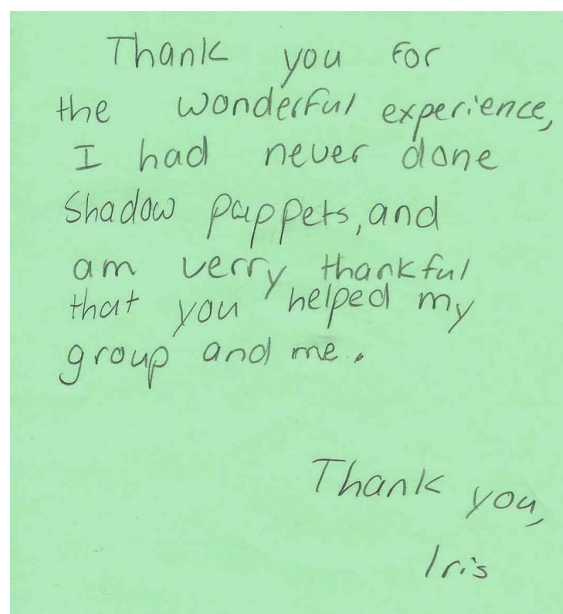 Thank you for
the wonderful experience,
I had never done
Shadow puppets, and
am verry thankful
that you helped my
group and me.
Thank you,
Iris